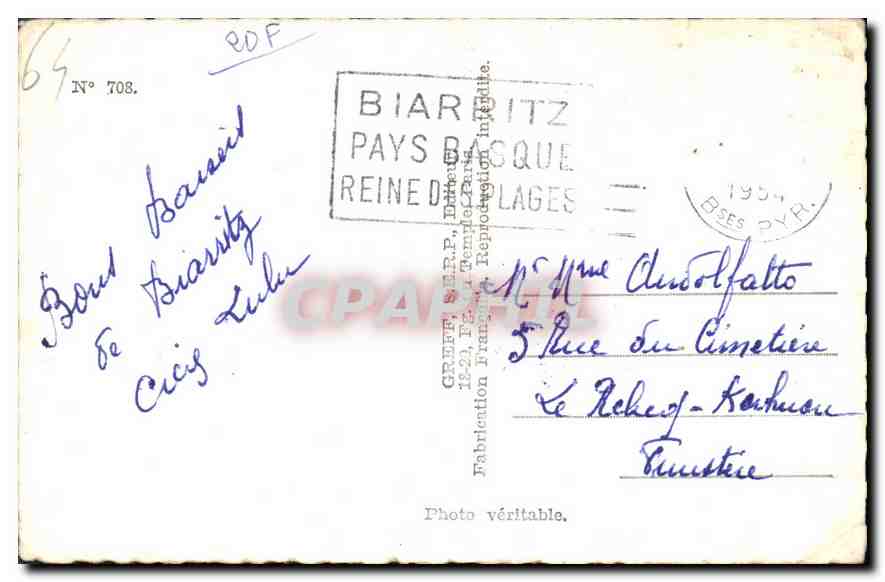 64
20F
N° 708.
BIARRITZ
PAYS BASQUE
REINE DES PLAGES
1954
Bses PYR.
Bons Baisers
de Biarritz
Lulu
GREFF, S.E.R.P., Editeur
Fg. du Temple, Paris
Fabrication Française, Reproduction interdite.
CPAPHIL
Mr Mme Andolfatto
5 Rue du Cimetière
Le
Finistère
Photo véritable.